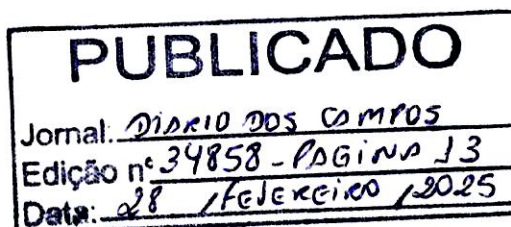 PUBLICADO
Jornal: DIARIO DOS CAMPOS
Edição nº 34858 - PAGINA 13
Data: 28 / FEVEREIRO / 2025